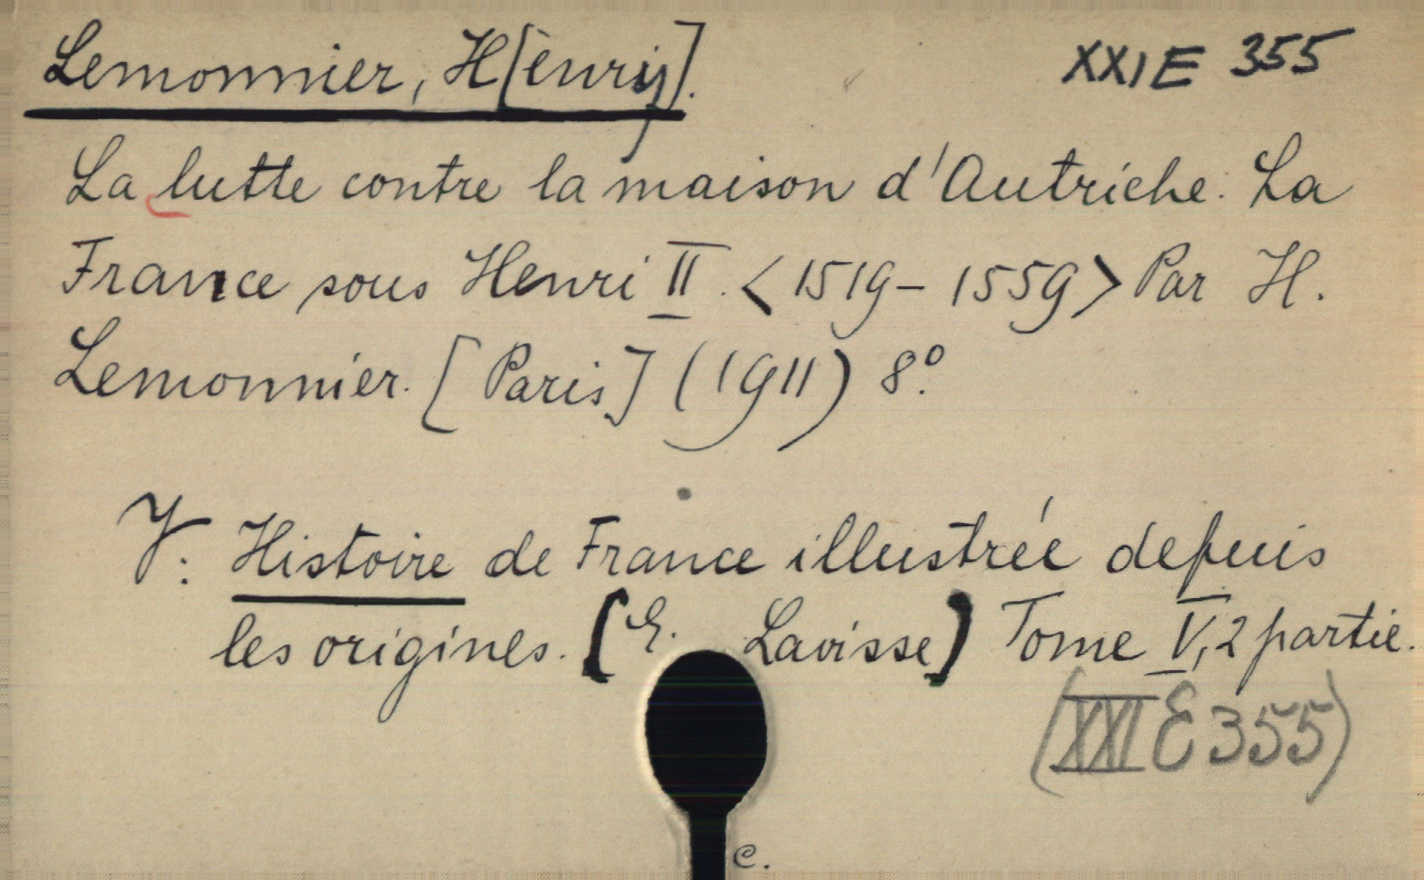 Lemonnier, H[enry]. XXI E 355
La lutte contre la maison d'Autriche. La
France sous Henri II. <1519-1559> Par H.
Lemonnier. [Paris] (1911) 8º.
V: Histoire de France illustrée depuis
les origines. [E. Lavisse] Tome V, 2 partie.
(XXI E 355)
c.